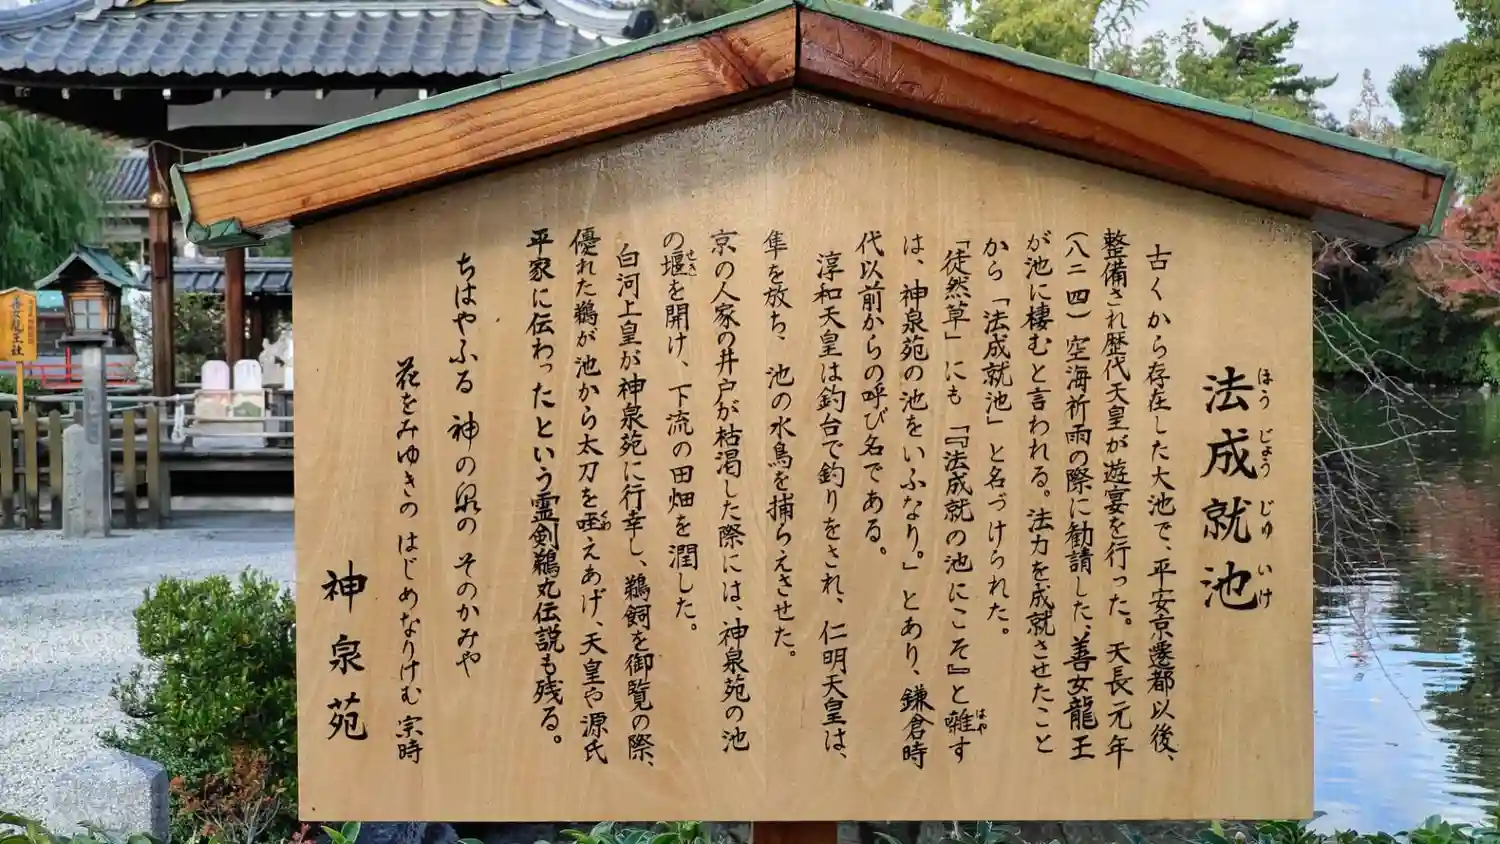 法成就池
ほう じょう じゅ いけ
古くから存在した大池で、平安京遷都以後、
整備され歴代天皇が遊宴を行った。天長元年
(八二四)空海祈雨の際に勧請した、善女龍王
が池に棲むと言われる。法力を成就させたこと
から「法成就池」と名づけられた。
「徒然草」にも『「法成就の池にこそ』と囃す
はや
は、神泉苑の池をいふなり。」とあり、鎌倉時
代以前からの呼び名である。
淳和天皇は釣台で釣りをされ、仁明天皇は、
隼を放ち、池の水鳥を捕らえさせた。
京の人家の井戸が枯渇した際には、神泉苑の池
の堰を開け、下流の田畑を潤した。
せき
白河上皇が神泉苑に行幸し、鵜飼を御覧の際、
優れた鵜が池から太刀を咥えあげ、天皇や源氏
くわ
平家に伝わったという霊剣鵜丸伝説も残る。
ちはやふる 神の泉の そのかみや
花をみゆきの はじめなりけむ 宗時
神泉苑
善女龍王社